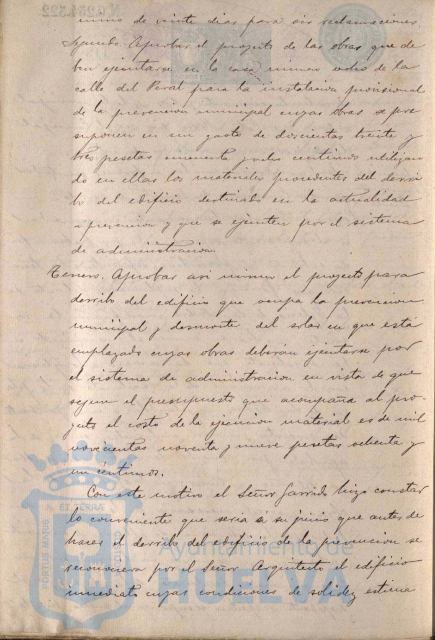 mino de veinte dias para oir reclamaciones
Segundo. Aprobar el proyecto de las obras que de
ben ejecutarse en la casa número ocho de la
calle del Peral para la instalacion provisional
de la prevencion municipal cuyas obras se pre
suponen en un gasto de doscientas treinta y
tres pesetas cincuenta y ocho centimos utilizan
do en ellas los materiales procedentes del derri
bo del edificio destinado en la actualidad
a prevencion y que se ejecuten por el sistema
de administracion.
Tercero. Aprobar asi mismo el proyecto para
derribo del edificio que ocupa la prevencion
municipal y desmonte del solar en que está
emplazado cuyas obras deberán ejecutarse por
el sistema de administracion en vista de que
segun el presupuesto que acompaña al pro-
yecto el costo de la ejecucion material es de mil
novecientas noventa y nueve pesetas ochenta y
un centimos.
Con este motivo el Señor Garrido hizo constar
lo conveniente que seria a su juicio que antes de
hacer el derribo del edificio de la prevencion se
reconociera por el Señor Arquitecto el edificio
inmediato cuyas condiciones de solidez estima
Ayuntamiento de
HUELVA